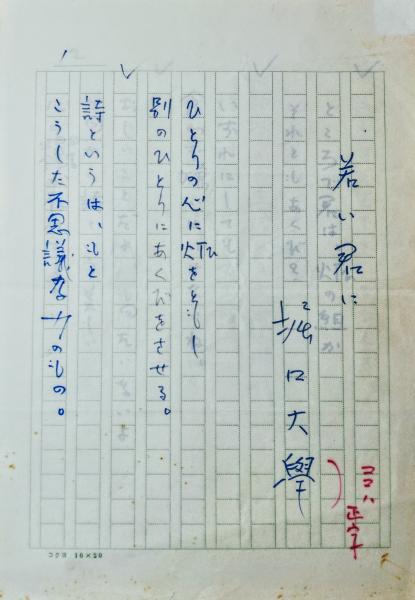 若い君に
堀口大學
ココハ
正字
ひとりの心に灯をともし
ひ
別のひとりにあくびをさせる。
詩というはもと
こうした不思議な のもの。
1
コクヨ 10×20